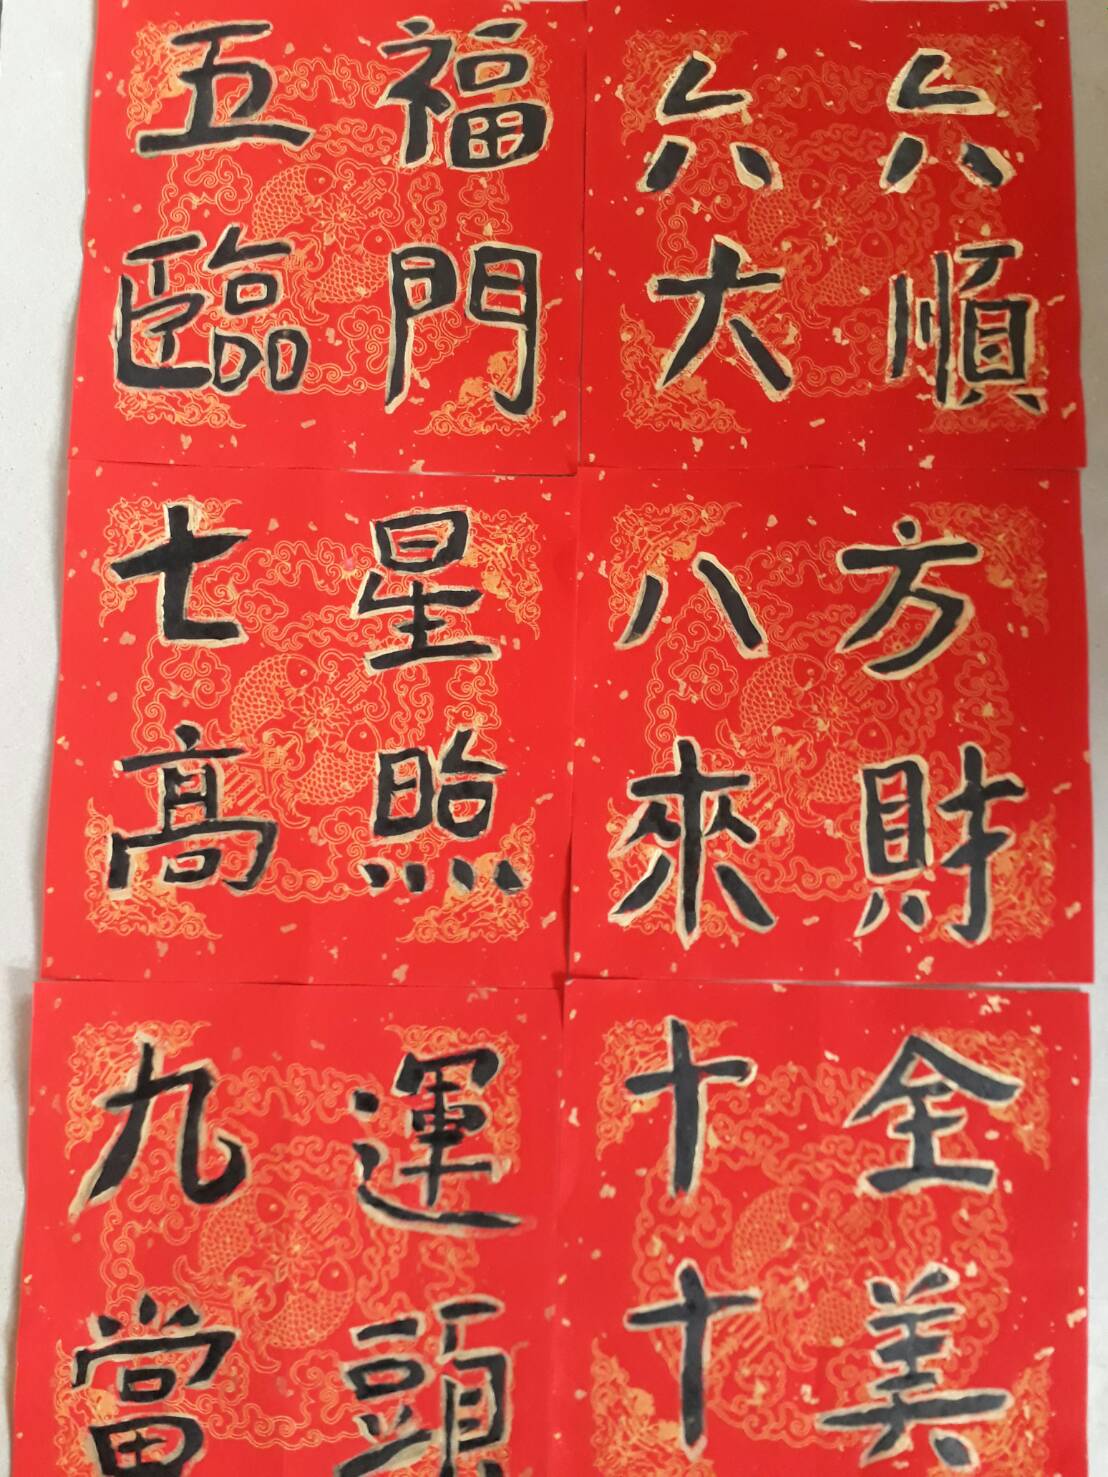 五福
臨門
六六
大順
七星
高照
八方
來財
九運
當頭
十全
十美